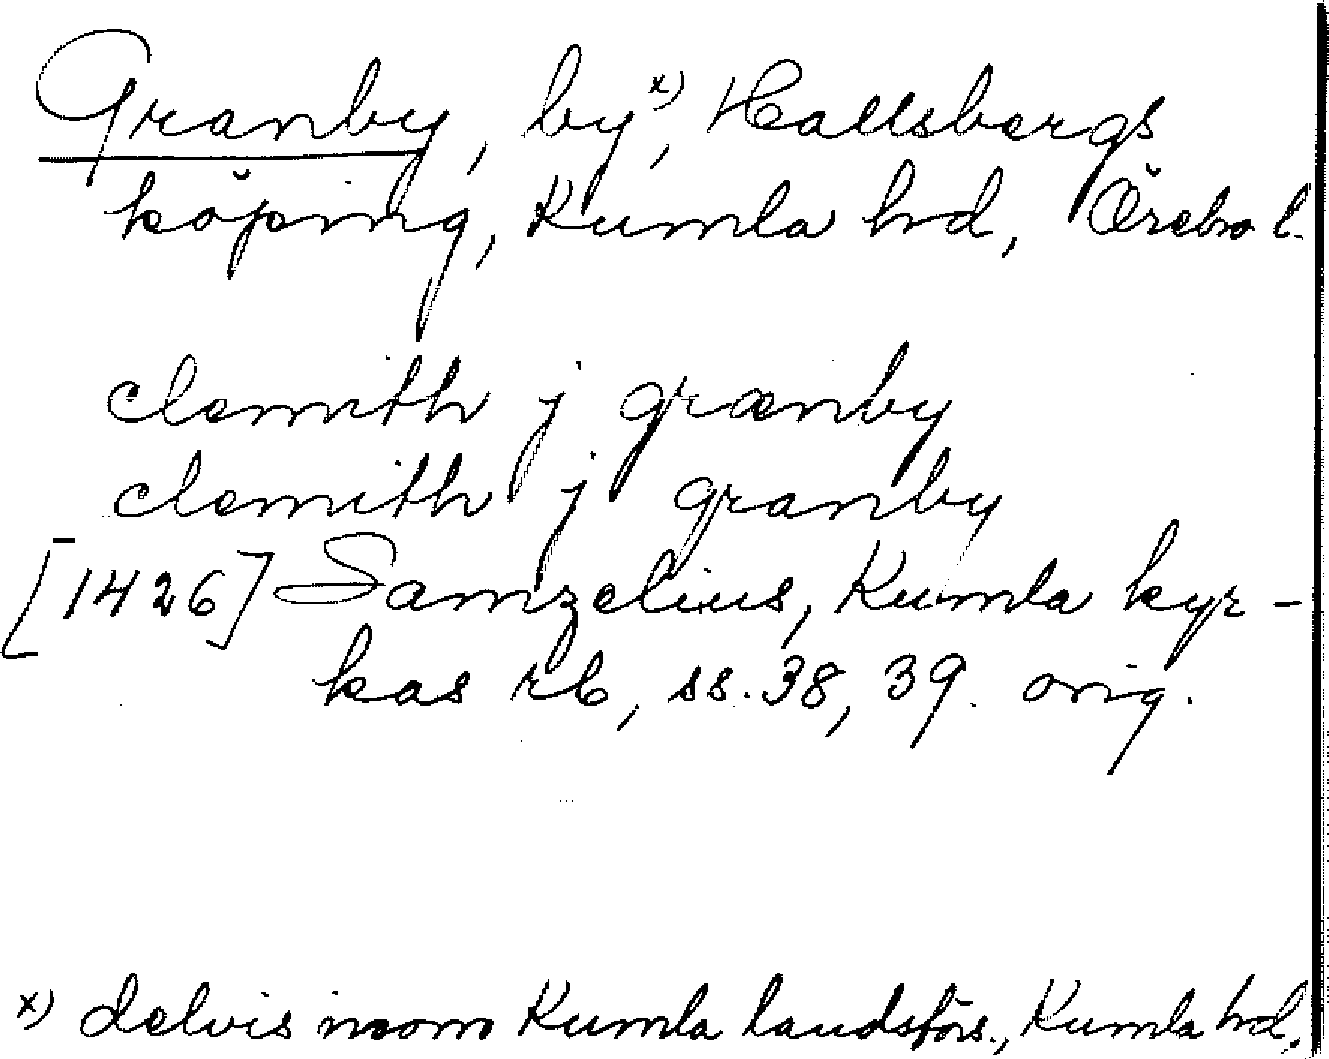 Granby, by x), Hallsbergs
köping, Kumla hd, Örebro l.
clemith j grænby
clemith j granby
[1426] Samzelius, Kumla kyr-
kas rb, ss. 38, 39. orig.
x) delvis inom Kumla landsförs., Kumla hd.